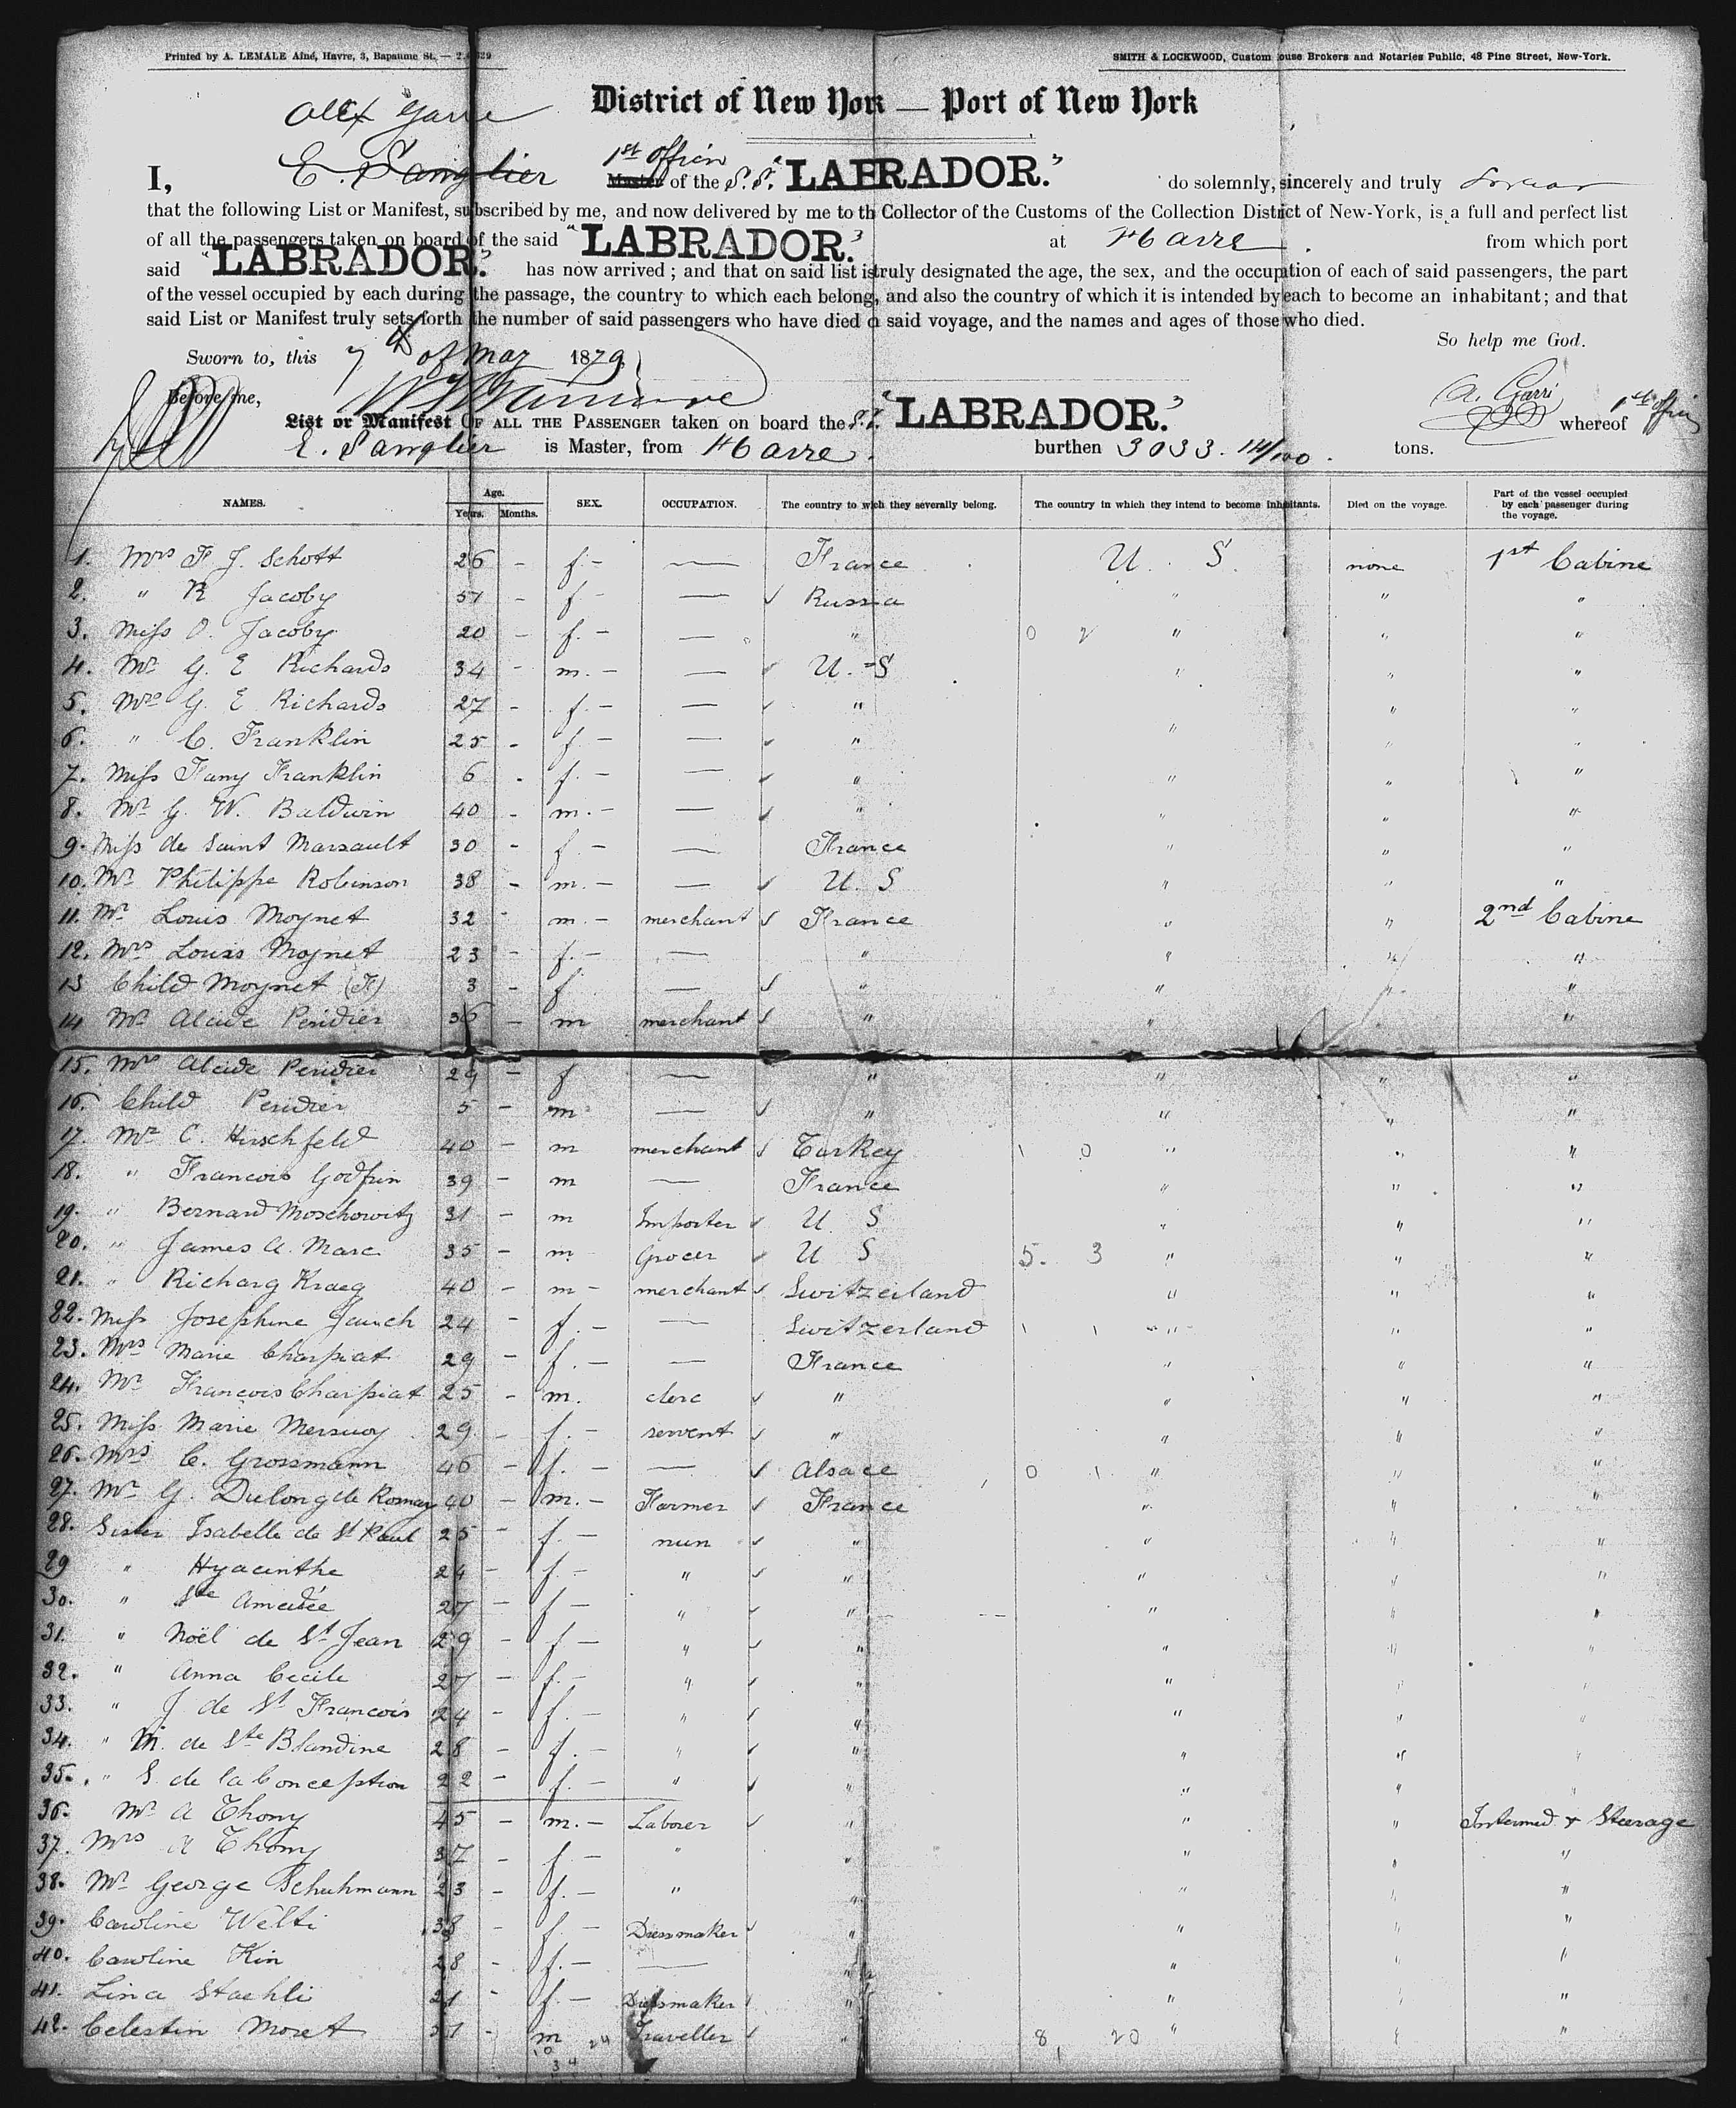 Printed by A. LEMALE Aîné, Havre, 3, Bapaume St. —
SMITH & LOCKWOOD, Custom ouse Brokers and Notaries Public, 48 Pine Street, New-York.
District of New Yor — Port of New York
Alex Garre
I, E. Sanglier 1st Officer Master of the S.S. "LABRADOR." do solemnly, sincerely and truly swear
that the following List or Manifest, subscribed by me, and now delivered by me to th Collector of the Customs of the Collection District of New-York, is a full and perfect list
of all the passengers taken on board of the said "LABRADOR." at Havre from which port
said "LABRADOR." has now arrived; and that on said list is truly designated the age, the sex, and the occupation of each of said passengers, the part
of the vessel occupied by each during the passage, the country to which each belong, and also the country of which it is intended by each to become an inhabitant; and that
said List or Manifest truly sets forth the number of said passengers who have died o said voyage, and the names and ages of those who died.
So help me God.
Sworn to, this 7th of May 1879
Before me,
A. Garri 1st Officer
List or Manifest OF ALL THE PASSENGER taken on board the S.S. "LABRADOR." whereof
E. Sanglier is Master, from Havre. burthen 3033. 14/100. tons.
NAMES. Age. Years. Months. SEX. OCCUPATION. The country to wich they severally belong. The country in which they intend to become inhabitants. Died on the voyage. Part of the vessel occupied by each passenger during the voyage.
1. Mrs F J. Schott 26 - f. - — France U. S. none 1st Cabine
2. " R Jacoby 51 - f - — Russia " " "
3. Miss O. Jacoby 20 - f. - — " 0 2 " " "
4. Mr G. E Richards 34 - m. - — U. S " " "
5. Mrs G. E Richards 27 - f - — " " "
6. " C. Franklin 25 - f - — " " " "
7. Miss Fany Franklin 6 - f. - — " " " "
8. Mr G. W. Baldwin 40 - m. - — " " " "
9. Miss de Saint Marsault 30 - f - — France " " "
10. Mr Philippe Robinson 38 - m. - — U. S " " "
11. Mr Louis Moynet 32 - m. - merchant France " " 2nd Cabine
12. Mrs Louis Moynet 23 - f. - — " " " "
13 Child Moynet (F) 3 - f — " " " "
14 Mr Alcide Peridier 36 - m merchant " " " "
15. Mrs Alcide Peridier 29 - f — " " " "
16. Child Peridier 5 - m — " " " "
17. Mr C. Hirschfeld 40 - m merchant Turkey 1 0 " " "
18. " Francois Godfrin 39 - m — France " " "
19. " Bernard Moschowitz 31 - m Importer U S " " "
20. " James A. Marc 35 - m Grocer U S 5. 3 " " "
21. " Richarg Kraeg 40 - m - merchant Switzerland " " "
22. Miss Josephine Jauch 24 - f. - — Switzerland 1 1 " " "
23. Mrs Marie Charpiat 29 - f. - — France " " "
24. Mr Francois Charpiat 25 - m. clerc " " " "
25. Miss Marie Mersuoy 29 - f. - servent " " " "
26. Mrs C. Grossmann 46 - f. - — Alsace 0 1 " " "
27. Mr G. Dulong de Rosnay 40 - m. - Farmer France " " "
28. Sister Isabelle de St Paul 25 - f. - nun " " " "
29 " Hyacinthe 24 - f - " " " " "
30. " Ste Amedée 27 - f - " " " " "
31. " Noël de St Jean 29 - f - " " " " "
32. " Anna Cecile 27 - f - " " " " "
33. " J de St Francois 24 - f. - " " " " "
34. " M. de Ste Blandine 28 - f. - " " " " "
35. " S. de la Conception 22 - f. - " " " " "
36. Mr A Thony 45 - m. - Laborer " " " Intermed & Steerage
37. Mrs A Thony 37 - f - " " " " "
38. Mr George Schuhmann 23 - f. - " " " " "
39. Caroline Welti 38 - f - Dressmaker " " " "
40. Caroline Kin 28 - f. - — " " " "
41. Lina Staehli 21 - f - Dressmaker " " " "
42. Celestin Moret 31 - m Traveller " 8 20 " " "